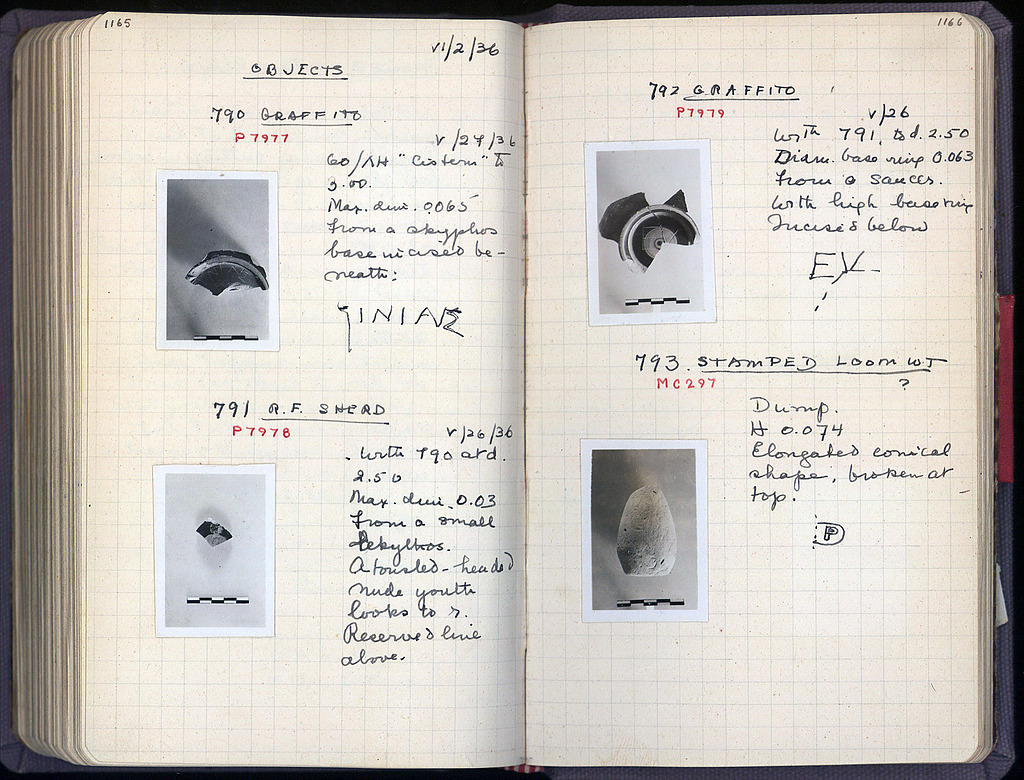 1165
V/2/36
OBJECTS
790 GRAFFITO
P 7977
V/27/36
60/ΛΗ "Cistern" to
3.00.
Max. dim. 0.065
From a skyphos
base incised be-
neath:
ΙΝΙΑΣ
791 R.F. SHERD
P 7978
V/26/36
With 790 at d.
2.50
Max. dim. 0.03
From a small
lekythos.
A tousled-headed
nude youth
looks to r.
Reserved line
above.
1166
792 GRAFFITO
P 7979
V/26
With 791, to d. 2.50
Diam. base ring 0.063
From a saucer.
With high base ring
Incised below
EY
793. STAMPED LOOM WT
MC 297
?
Dump.
H 0.074
Elongated conical
shape, broken at
top.
P